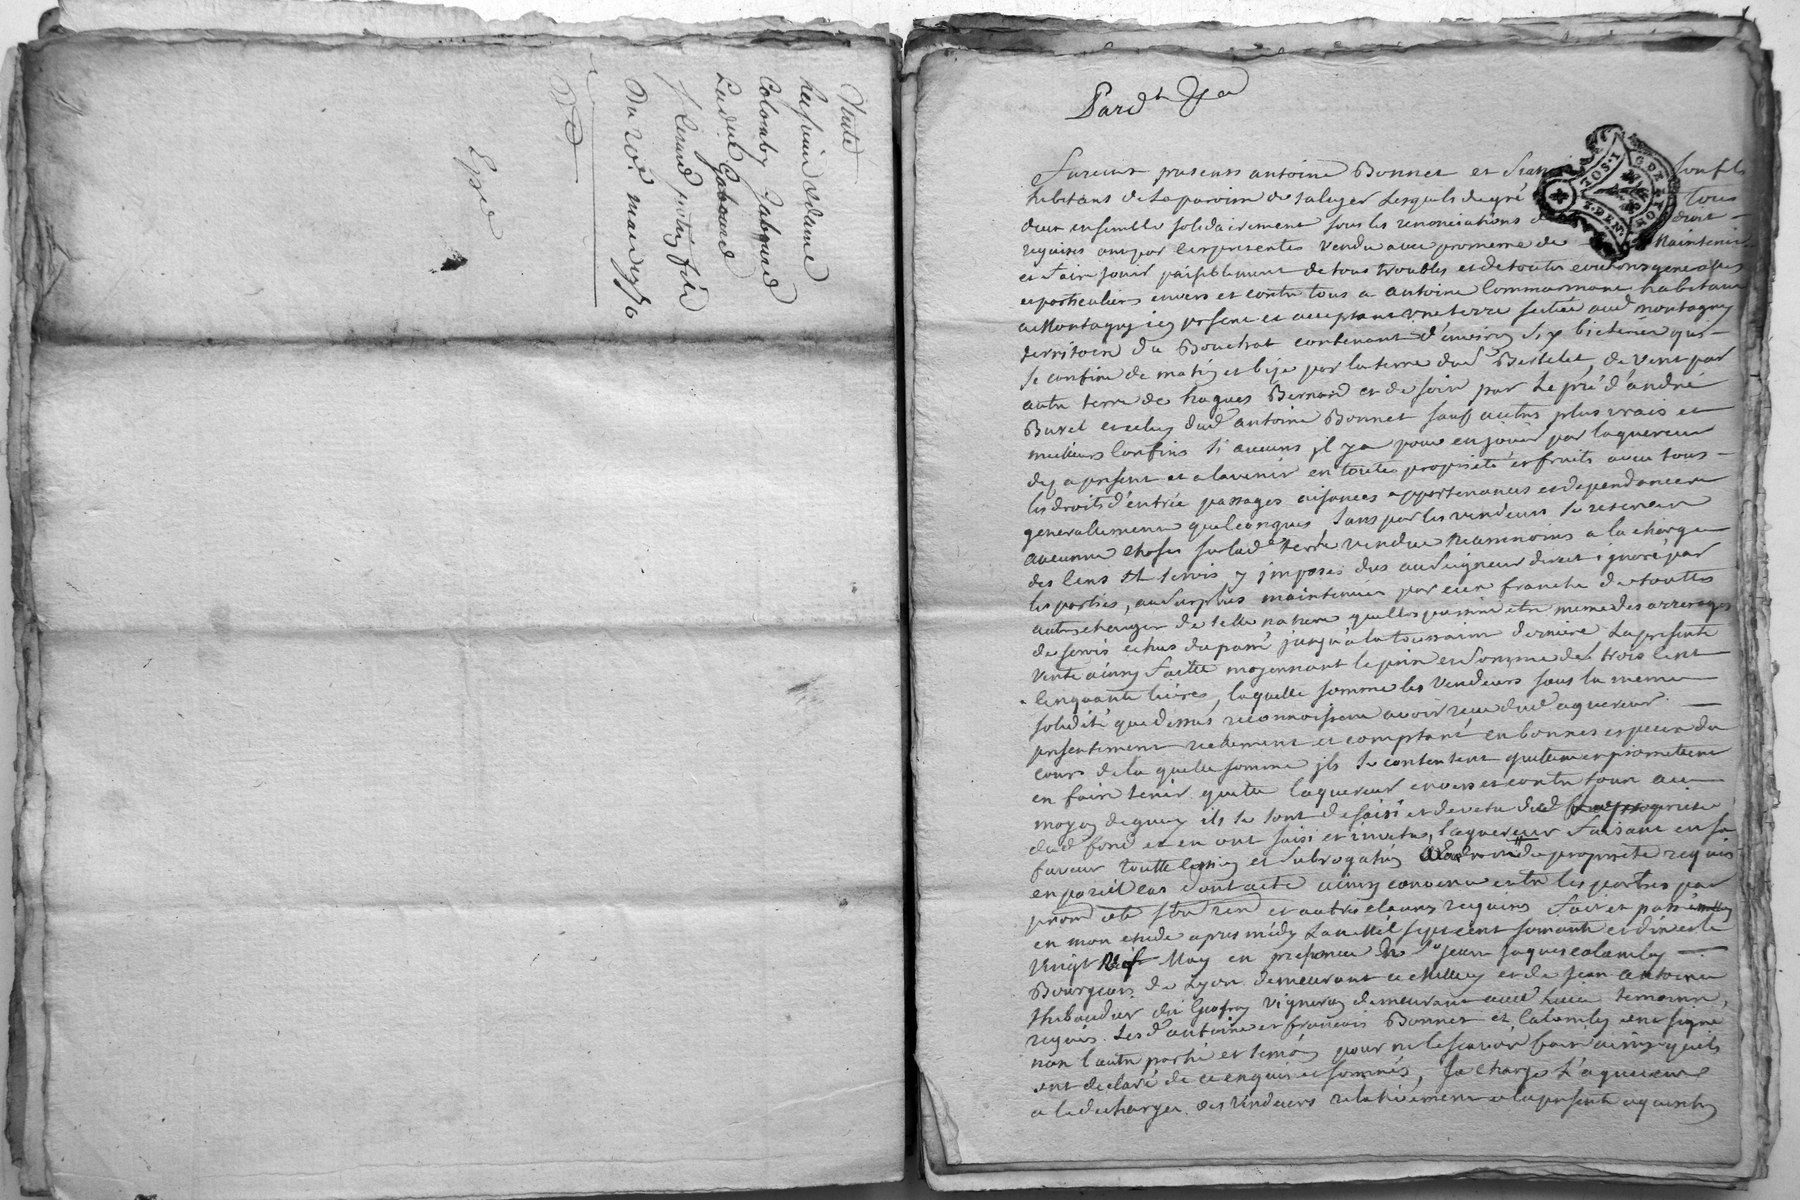 Vente
Colomby Gabourd
Gabourd
Du 20e mai 1770
Exped
Pard.t
G. DE LYON
2. DEN.
furent presens antoine Bonnet et son fils
habitans de la paroisse de taluyer lesquels de gré tous
deux ensemble solidairement sous les renonciations de droit
requises ont par ces presentes vendu avec promesse de maintenir
et faire jouir paisiblement de tous troubles et de toutes evictions generales
et particuliers envers et contre tous a antoine Commarmont habitant
a Montagny icy psent et acceptant une terre scituée aud montagny
territoire du Bouchat contenant d'environ six bicherées qui
se confine de matin et bize par la terre dud Berthelet, de vent par
autre terre de hugues Bernard et de soir par le pré d'andré
Buret et celuy dud antoine Bonnet sauf autres plus vrais et
meilleurs confins si aucuns il y a pour en jouir par laquereur
des a psent et a lavenir en toutes proprieté et fruits avec tous
les droits d'entrée passages aisances appartenances et dependances
generallement quelconques, sans par les vendeurs se reserver
aucunne choses sur lad.e terre vendue neanmoins a la charge
des cens et servis y imposés dus au seigneur direct ignoré par
les parties, au surplus maintenue par eux franche de toutes
autres charges de telle nature quelles puissent etre meme des arrerages
de servis echus du passé jusqu'a la toussaint derniere la presente
vente ainsy faitte moyennant le prix et somme de trois cent
cinquante livres, laquelle somme les vendeurs sous la meme
solidité que dessus reconnoissent avoir recu dud aquereur
presentement reelement et comptant en bonnes especes du
cours de la quelle somme ils se contentent quittent et promettent
en faire tenir quitte laquereur envers et contre tous au
moyen de quoy ils se sont desaisi et devetu
dud fond et en ont saisi et investu, l'aquereur faisant en sa
faveur toutte cession et subrogation de proprieté requis
en pareil cas dont acte ainsy convenu entre les parties par
prom et autres clauses requises fait et passé
en mon etude apres midy Lan Mil sept cent soixante et dix et le
Vingt May en presence de s.r jean jaques colomby
Bourgeois de Lyon demeurant a Millery et de jean antoine
thibaudier dit Geofray vigneron demeurant aud lieu temoins
requis. Lesd antoine et françois Bonnet et Colomby ont signé
non l'autre partie et temoin pour ne le scavoir faire ainsy quils
ont declaré de ce enquis et sommés, Ja charge L'aquereur
a la decharge des vendeurs relativement a la psente aquisition